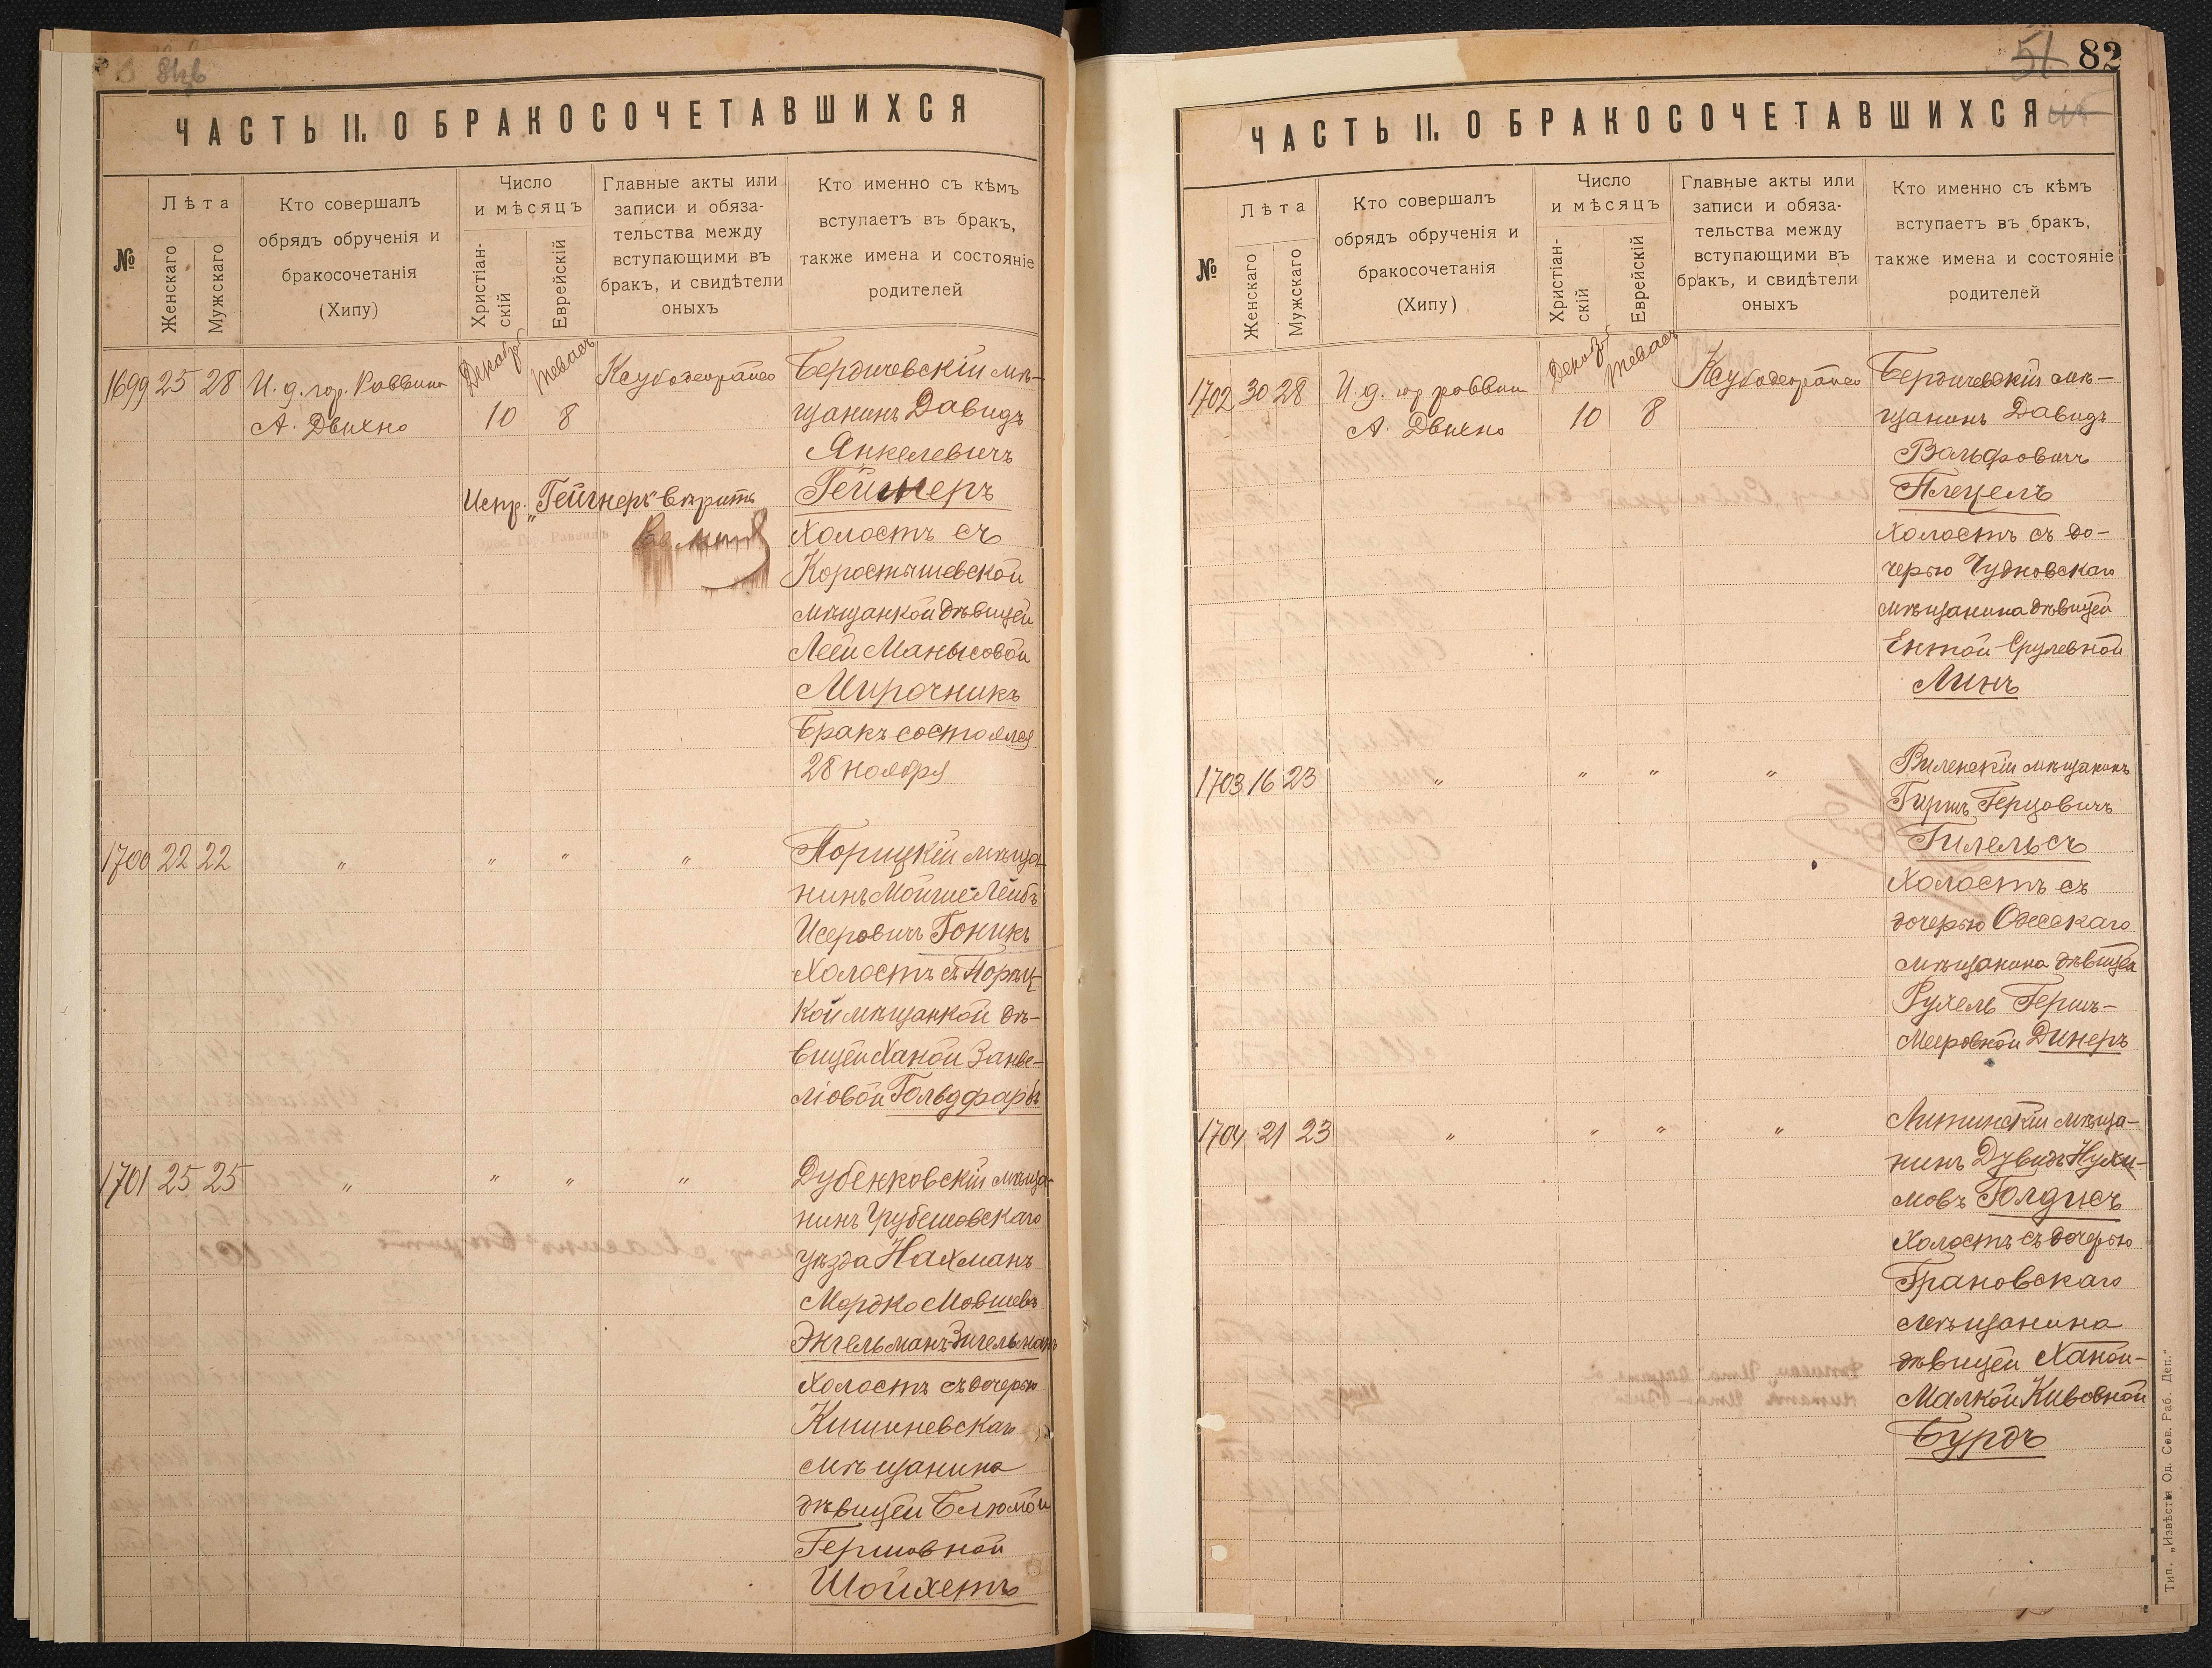 ЧАСТЬ II. О БРАКОСОЧЕТАВШИХСЯ
№
Лѣта
Женскаго
Мужскаго
Кто совершалъ
обрядъ обрученія и
бракосочетанія
(Хипу)
Число
и мѣсяцъ
Христіан-
скій
Еврейскій
Главные акты или
записи и обяза-
тельства между
вступающими въ
бракъ, и свидѣтели
оныхъ
Кто именно съ кѣмъ
вступаетъ въ бракъ,
также имена и состояніе
родителей
1699 25 28 И. д. гор. Раввина
А. Двихно
Декабр
10
тевасъ
8
Бердичевскій мѣ-
щанинъ Давидъ
Янкелевичъ
Гейгнеръ
Испр. „Гейгнеръ" вѣрить
Холостъ съ
Коростышевской
мѣщанкой дѣвицей
Леей Манысовой
Мирочникъ
Бракъ состоялся
28 ноября
1700 22 22 „ „ „ „
Порицкій мѣща-
нинъ Мойше-Лейбъ
Исеровичъ Гоникъ
Холостъ съ Порыц-
кой мѣщанкой дѣ-
вицей Ханой Занве-
ліовой Гольдфарбъ
1701 25 25 „ „ „ „
Дубенковскій мѣща-
нинъ Грубешовскаго
уѣзда Нахманъ
Мордко Мовшевъ
Энгельманъ-Зигельманъ
Холостъ съ дочерью
Кишиневскаго
мѣщанина
дѣвицей Блюмой
Гершовной
Шойхетъ
51 82
ЧАСТЬ II. О БРАКОСОЧЕТАВШИХСЯ
№
Лѣта
Женскаго
Мужскаго
Кто совершалъ
обрядъ обрученія и
бракосочетанія
(Хипу)
Число
и мѣсяцъ
Христіан-
скій
Еврейскій
Главные акты или
записи и обяза-
тельства между
вступающими въ
бракъ, и свидѣтели
оныхъ
Кто именно съ кѣмъ
вступаетъ въ бракъ,
также имена и состояніе
родителей
1702 30 28 И. д. гор раввин
А. Двихно
Декабр
10
тевасъ
8
Бердичевскій мѣ-
щанинъ Давидъ
Вольфовичъ
Плецелъ
Холостъ съ до-
черью Чудновскаго
мѣщанина дѣвицей
Ентой Срулевной
Линъ
1703 16 23 „ „ „ „
Виленскій мѣщанинъ
Гиршъ Герцовичъ
Гилельсъ
Холостъ съ
дочерью Одесскаго
мѣщанина дѣвицей
Рухель Гершъ-
Мееровной Динеръ
1704 21 23 „ „ „ „
Литинскій мѣща-
нинъ Дувидъ Нухи-
мовъ Голдисъ
Холостъ съ дочерью
Грановскаго
мѣщанина
дѣвицей Ханой-
Малкой Кивовной
Бурдъ
Тип. „Извѣстія Од. Сов. Раб. Деп."